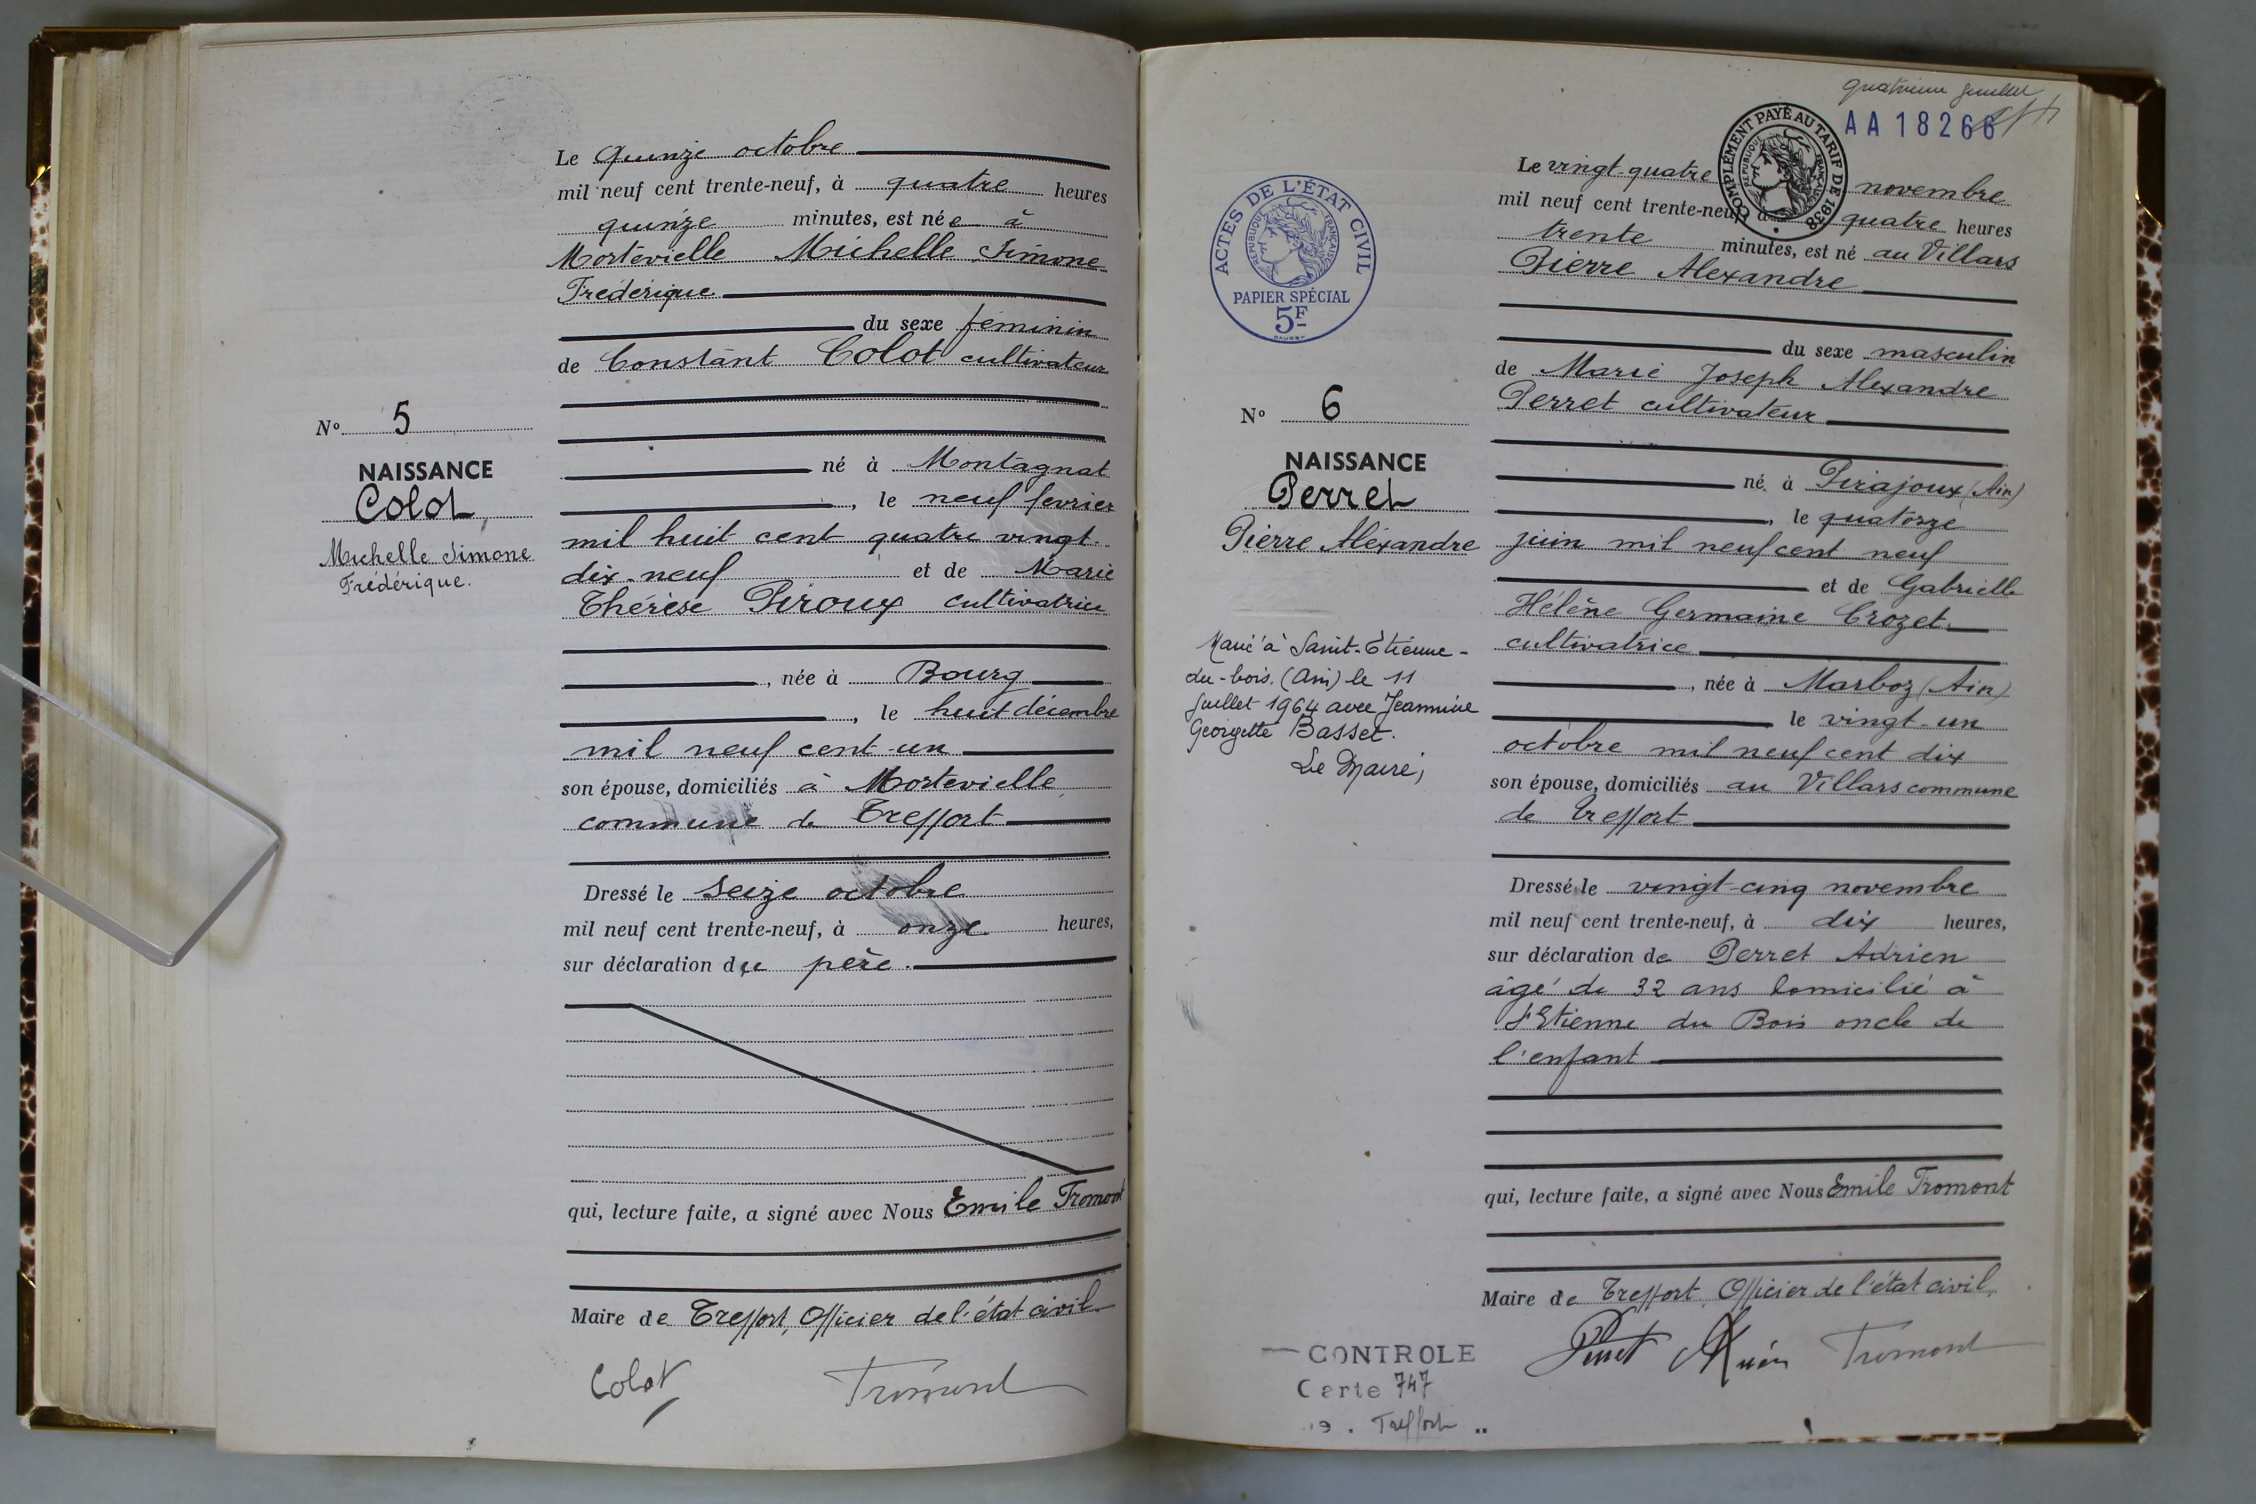 Le quinze octobre
mil neuf cent trente-neuf, à quatre heures
quinze minutes, est née à
Mortevielle Michelle Simone
Frédérique
du sexe féminin
de Constant Colot cultivateur
N° 5
né à Montagnat
NAISSANCE
Colot
, le neuf fevrier
Michelle Simone
Frédérique.
mil huit cent quatre vingt-
dix-neuf et de Marie
Thérèse Piroux cultivatrice
, née à Bourg
, le huit décembre
mil neuf cent un
son épouse, domiciliés à Mortevielle
commune de Treffort
Dressé le seize octobre
mil neuf cent trente-neuf, à onze heures,
sur déclaration du père.
qui, lecture faite, a signé avec Nous Emile Fromont
Maire de Treffort, Officier de l'état civil
Colot Fromont
quatrième feuillet
AA 18266
COMPLÉMENT PAYÉ AU TARIF DE 1938
RÉPUBLIQUE FRANÇAISE
ACTES DE L'ÉTAT CIVIL
RÉPUBLIQUE FRANÇAISE
PAPIER SPÉCIAL
5F
Le vingt-quatre novembre
mil neuf cent trente-neuf, à quatre heures
trente minutes, est né au Villars
Pierre Alexandre
du sexe masculin
de Marie Joseph Alexandre
Perret cultivateur
N° 6
NAISSANCE
Perret
Pierre Alexandre
né à Pirajoux (Ain)
, le quatorze
juin mil neuf cent neuf
et de Gabrielle
Hélène Germaine Crozet
cultivatrice
, née à Marboz (Ain)
le vingt-un
octobre mil neuf cent dix
son épouse, domiciliés au Villars commune
de Treffort
Marié à Saint-Étienne-
du-bois. (Ain) le 11
juillet 1964 avec Jeannine
Georgette Basset.
Le Maire,
Dressé le vingt-cinq novembre
mil neuf cent trente-neuf, à dix heures,
sur déclaration de Perret Adrien
âgé de 32 ans domicilié à
St Etienne du Bois oncle de
l'enfant
qui, lecture faite, a signé avec Nous Emile Fromont
Maire de Treffort, Officier de l'état civil,
Perret Fromont
CONTROLE
Carte 747
Treffort